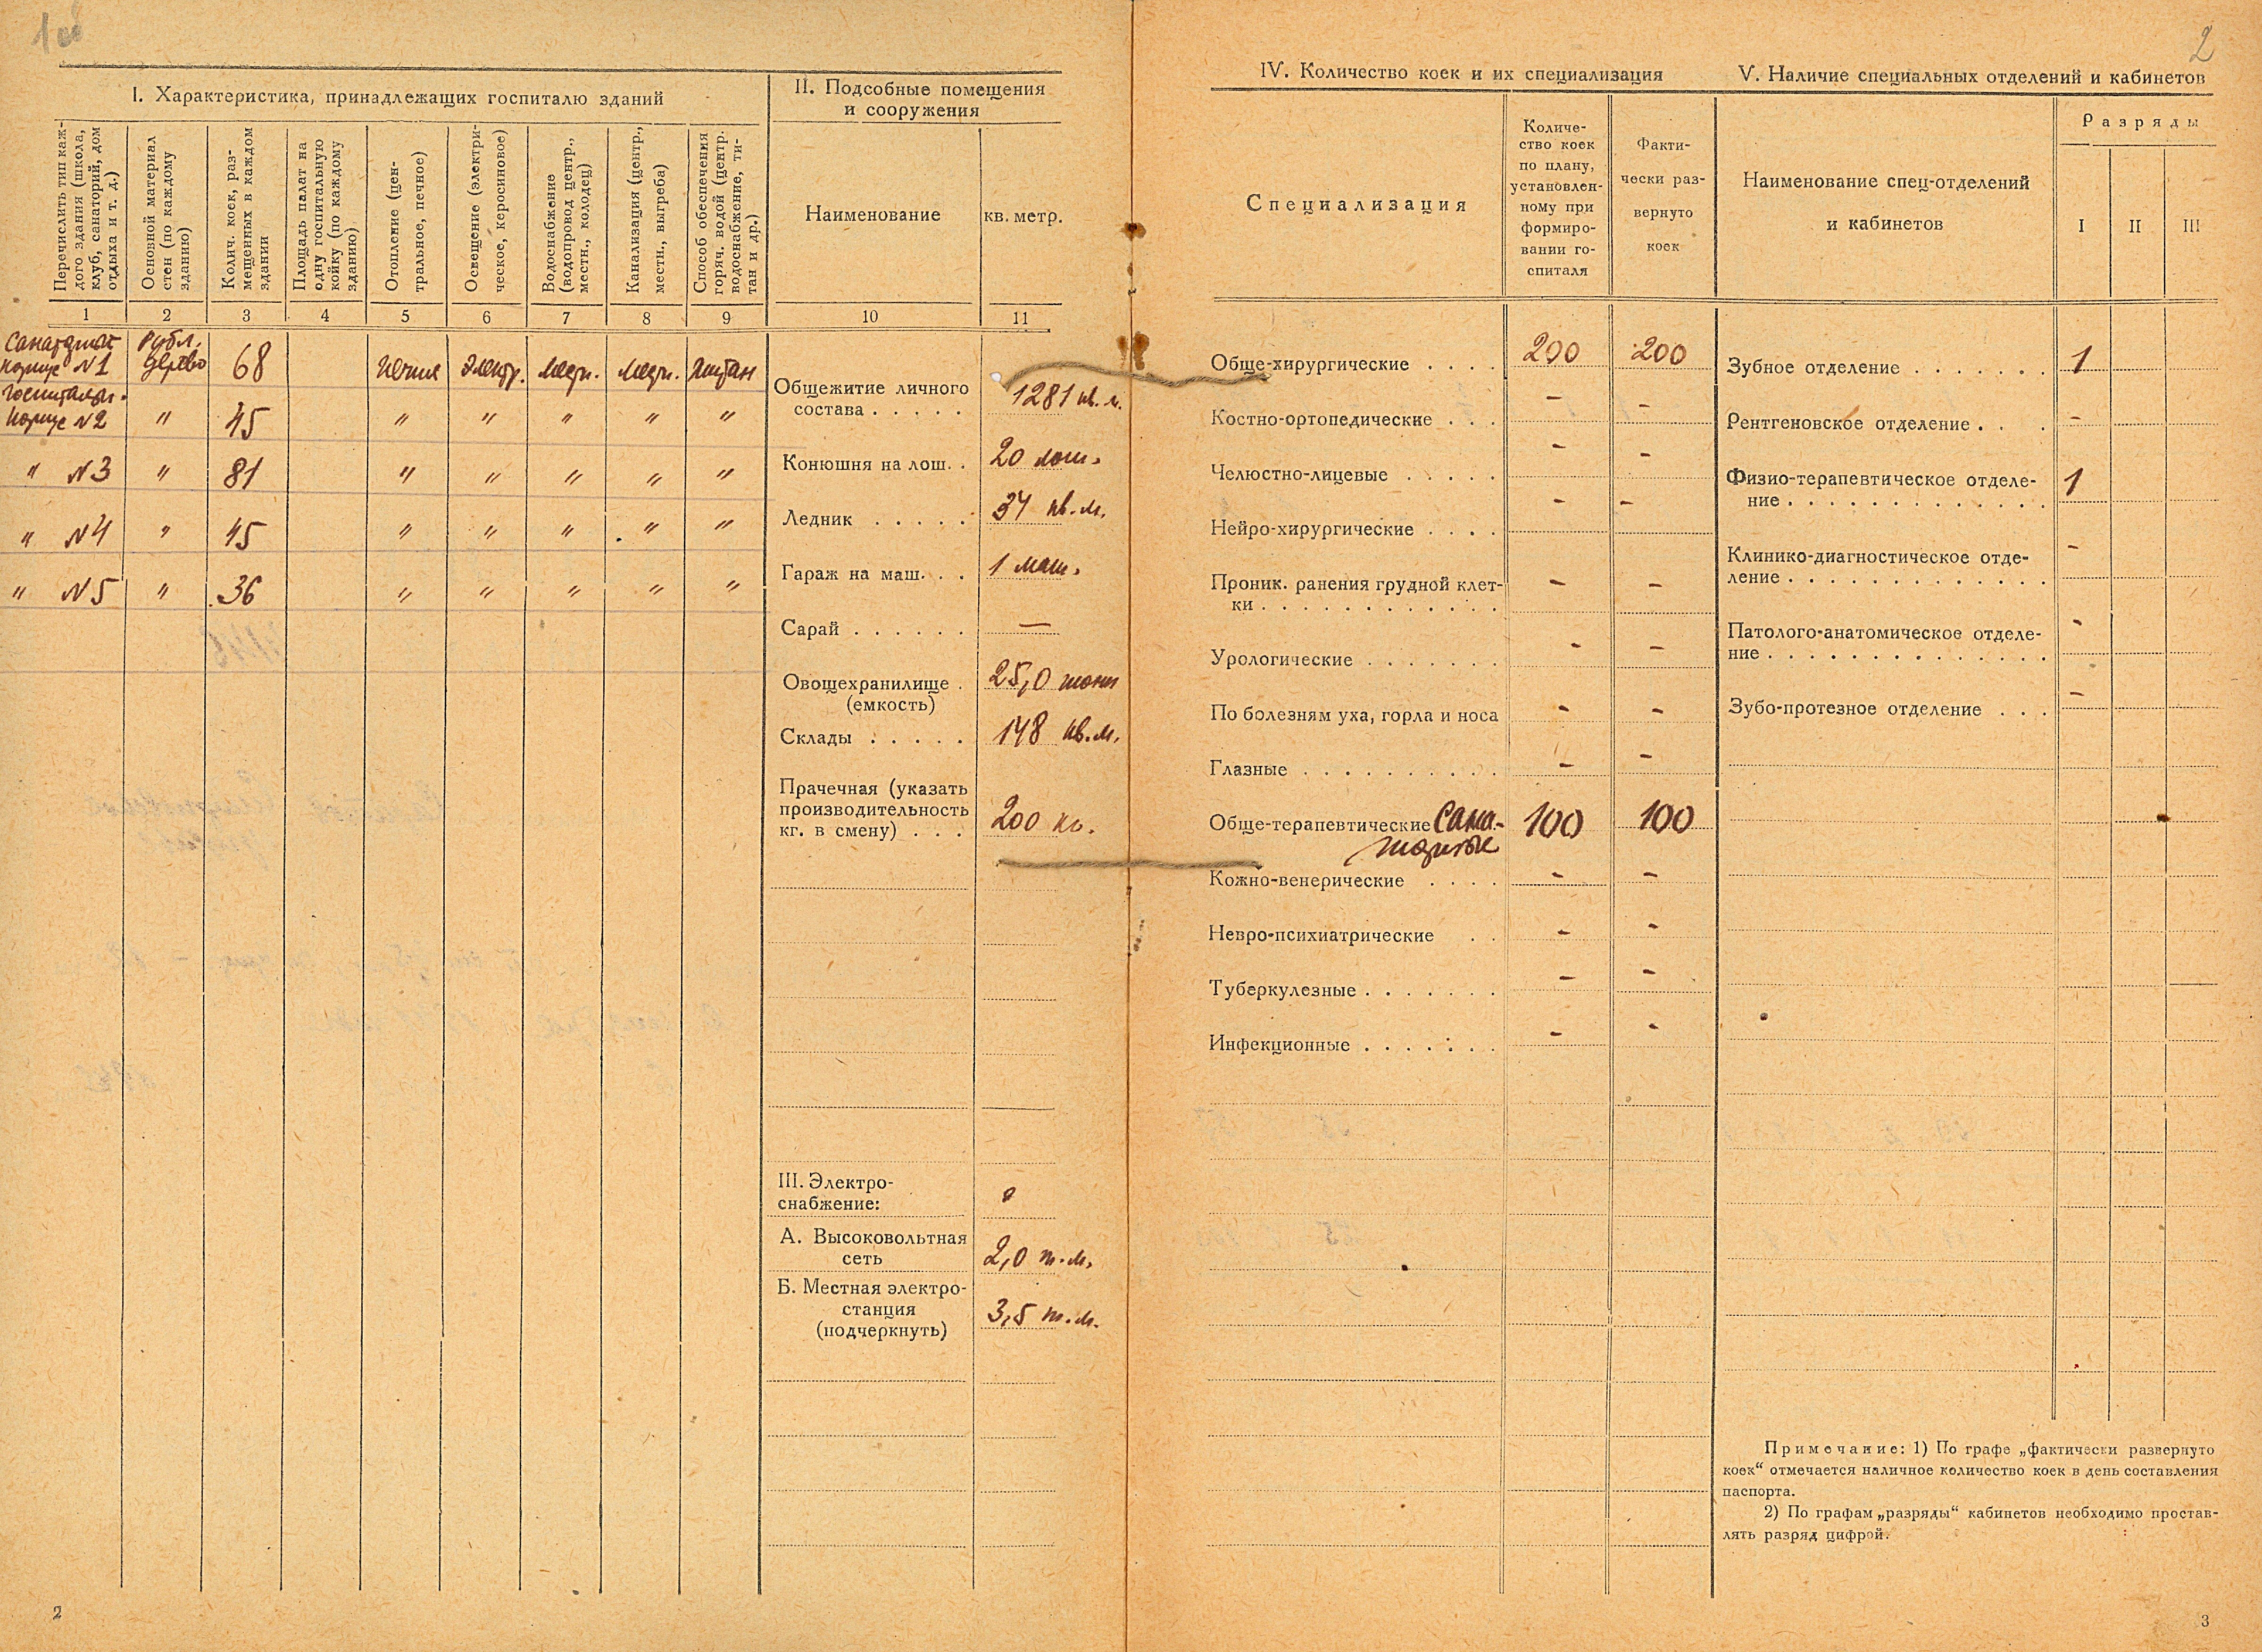 2
I. Характеристика, принадлежащих госпиталю зданий
II. Подсобные помещения
и сооружения
Перечислить тип каж-
дого здания (школа,
клуб, санаторий, дом
отдыха и т. д.)
Основной материал
стен (по каждому
зданию)
Колич. коек, раз-
мещенных в каждом
здании
Площадь палат на
одну госпитальную
койку (по каждому
зданию)
Отопление (цен-
тральное, печное)
Освещение (электри-
ческое, керосиновое)
Водоснабжение
(водопровод центр.,
местн., колодец)
Канализация (центр.,
местн., выгреба)
Способ обеспечения
горяч. водой (центр.
водоснабжение, ти-
тан и др.)
Наименование
кв. метр.
1 2 3 4 5 6 7 8 9 10 11
корпус №1 Рубл. дерево 68 печное электр. местн. местн. титан
госпитальн.
корпус №2 " 45 " " " " "
" №3 " 81 " " " " "
" №4 " 45 " " " " "
" №5 " 36 " " " " "
Общежитие личного
состава . . . . . 1281 кв. м.
Конюшня на лош. . 20 лош.
Ледник . . . . . 37 кв. м.
Гараж на маш. . . 1 маш.
Сарай . . . . . . —
Овощехранилище . 25,0 тонн
(емкость)
Склады . . . . . 148 кв. м.
Прачечная (указать
производительность
кг. в смену) . . . 200 кг.
III. Электро-
снабжение:
А. Высоковольтная
сеть 2,0 т. м.
Б. Местная электро-
станция 3,5 т. м.
(подчеркнуть)
2
IV. Количество коек и их специализация
Специализация
Количе-
ство коек
по плану,
установлен-
ному при
формиро-
вании го-
спиталя
Факти-
чески раз-
вернуто
коек
Обще-хирургические . . . . 200 200
Костно-ортопедические . . . - -
Челюстно-лицевые . . . . . - -
Нейро-хирургические . . . . - -
Проник. ранения грудной клет-
ки . . . . . . . . . . . . - -
Урологические . . . . . . . - -
По болезням уха, горла и носа - -
Глазные . . . . . . . . . . - -
Обще-терапевтические Сана- 100 100
торные
Кожно-венерические . . . . - -
Невро-психиатрические . . - -
Туберкулезные . . . . . . . - -
Инфекционные . . . . . . . - -
V. Наличие специальных отделений и кабинетов
Наименование спец-отделений
и кабинетов
Разряды
I II III
Зубное отделение . . . . . . . 1
Рентгеновское отделение . . . -
Физио-терапевтическое отделе- 1
ние . . . . . . . . . . . . .
Клинико-диагностическое отде- -
ление . . . . . . . . . . . .
Патолого-анатомическое отделе- -
ние . . . . . . . . . . . . .
Зубо-протезное отделение . . . -
Примечание: 1) По графе „фактически развернуто
коек“ отмечается наличное количество коек в день составления
паспорта.
2) По графам „разряды“ кабинетов необходимо простав-
лять разряд цифрой.
3